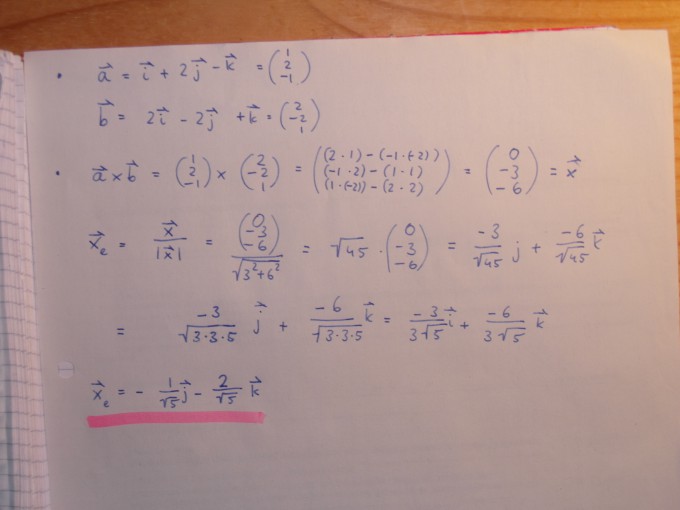 • a⃗ = i⃗ + 2j⃗ - k⃗ = (1 2 -1)
b⃗ = 2i⃗ - 2j⃗ + k⃗ = (2 -2 1)
• a⃗ x b⃗ = (1 2 -1) x (2 -2 1) = ((2·1) - (-1·(-2)) (-1·2) - (1·1) (1·(-2)) - (2·2)) = (0 -3 -6) = x⃗
x⃗e = x⃗/|x⃗| = (0 -3 -6)/√(3²+6²) = √45 · (0 -3 -6) = -3/√45 j + -6/√45 k⃗
= -3/√(3·3·5) j⃗ + -6/√(3·3·5) k⃗ = -3/(3√5) i⃗ + -6/(3√5) k⃗
x⃗e = - 1/√5 j⃗ - 2/√5 k⃗